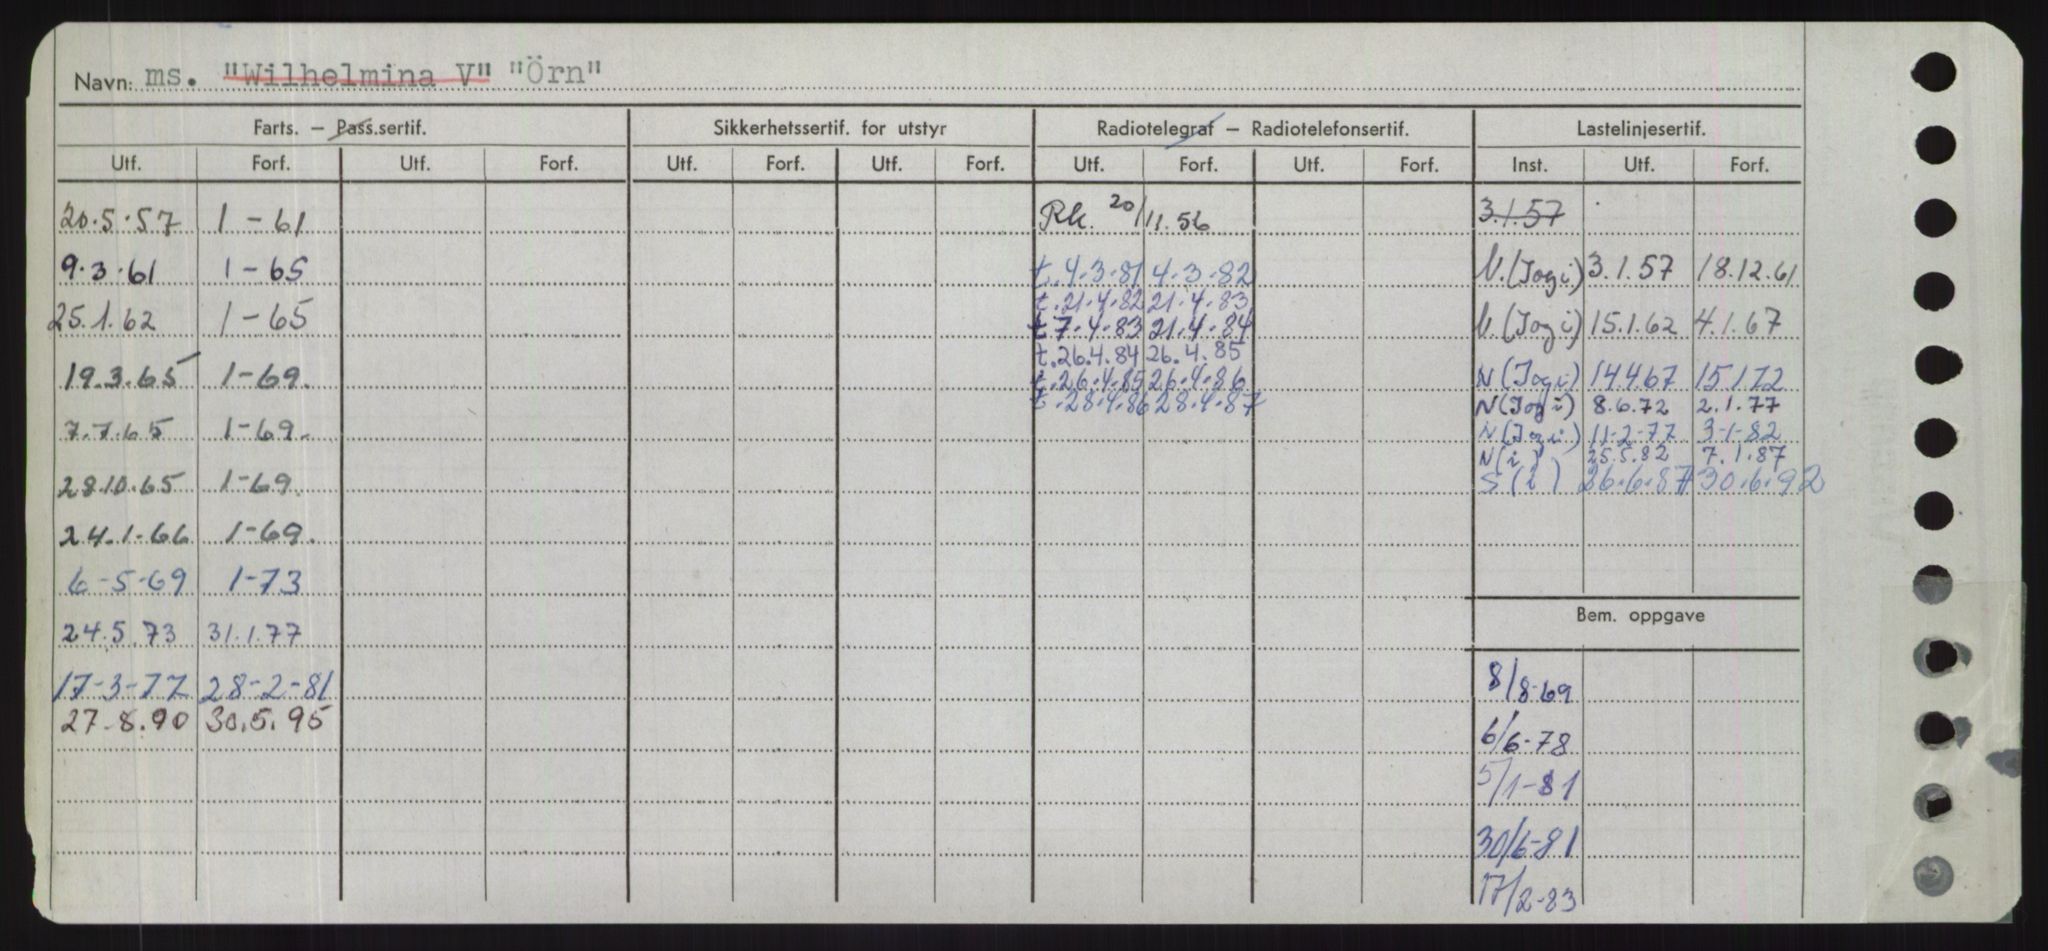 Navn: ms. "Wilhelmina V" "Örn"
Farts. – Pass.sertif. Sikkerhetssertif. for utstyr Radiotelegraf – Radiotelefonsertif. Lastelinjesertif.
Utf. Forf. Utf. Forf. Utf. Forf. Utf. Forf. Utf. Forf. Utf. Forf. Inst. Utf. Forf.
20.5.57 1-61 Rk. 20/11.56 3.1.57
9.3.61 1-65 t.4-3-81 4-3-82 N.(Jogi) 3.1.57 18.12.61
t.21.4.82 21.4.83
25.1.62 1-65 t 7-4-83 21.4.84 N.(Jogi) 15.1.62 4.1.67
t.26.4.84 26.4.85
19.3.65 1-69. t.26.4.85 26.4.86 N(Jogi) 14467 15172
t.28.4.86 28.4.87 N(Jogi) 8.6.72 2.1.77
7.7.65 1-69. N(Jogi) 11-2-77 3-1-82
N(i) 25.5.82 7.1.87
28.10.65 1-69. S(i) 26.6.87 30.6.92
24.1-66 1-69.
6-5-69 1-73
Bem. oppgave
24.5.73 31.1.77
17-3-77 28-2-81 8/8-69
27.8.90 30.5.95
6/6-78
5/1-81
30/6-81
17/2-83